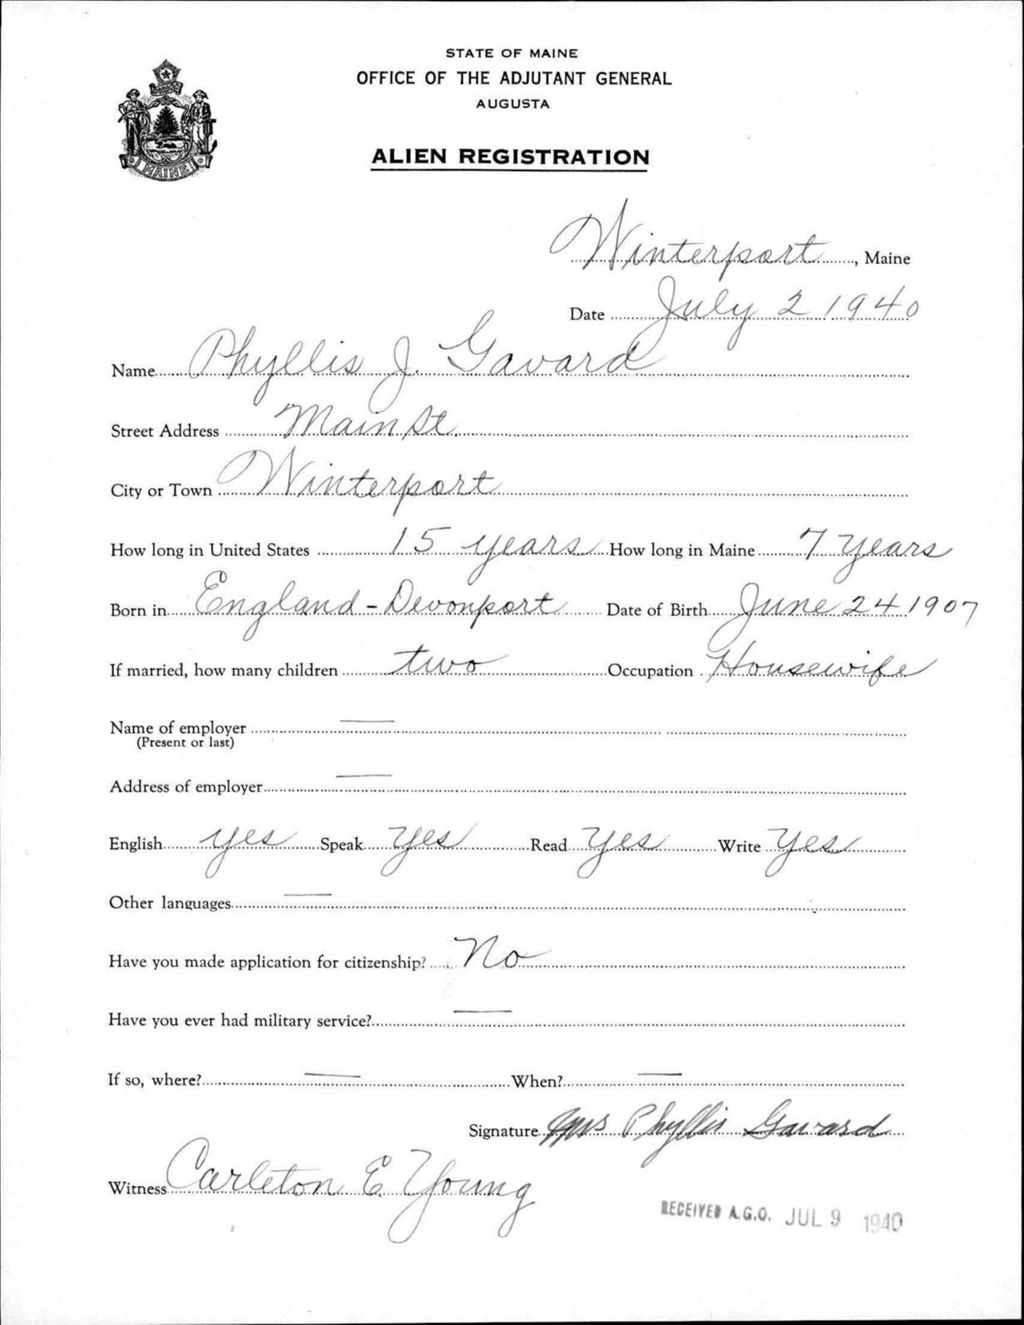 STATE OF MAINE
OFFICE OF THE ADJUTANT GENERAL
AUGUSTA
ALIEN REGISTRATION
MAINE
Winterport, Maine
Date July 2 1940
Name Phyllis J. Gavard
Street Address Main St.
City or Town Winterport
How long in United States 15 years How long in Maine 7 years
Born in England - Devonport Date of Birth June 24 1907
If married, how many children two Occupation Housewife
Name of employer —
(Present or last)
Address of employer —
English yes Speak Yes Read Yes Write Yes
Other languages —
Have you made application for citizenship? No
Have you ever had military service? —
If so, where? — When? —
Signature Mrs Phyllis Gavard
Witness Carleton E. Young
RECEIVED A.G.O. JUL 9 1940